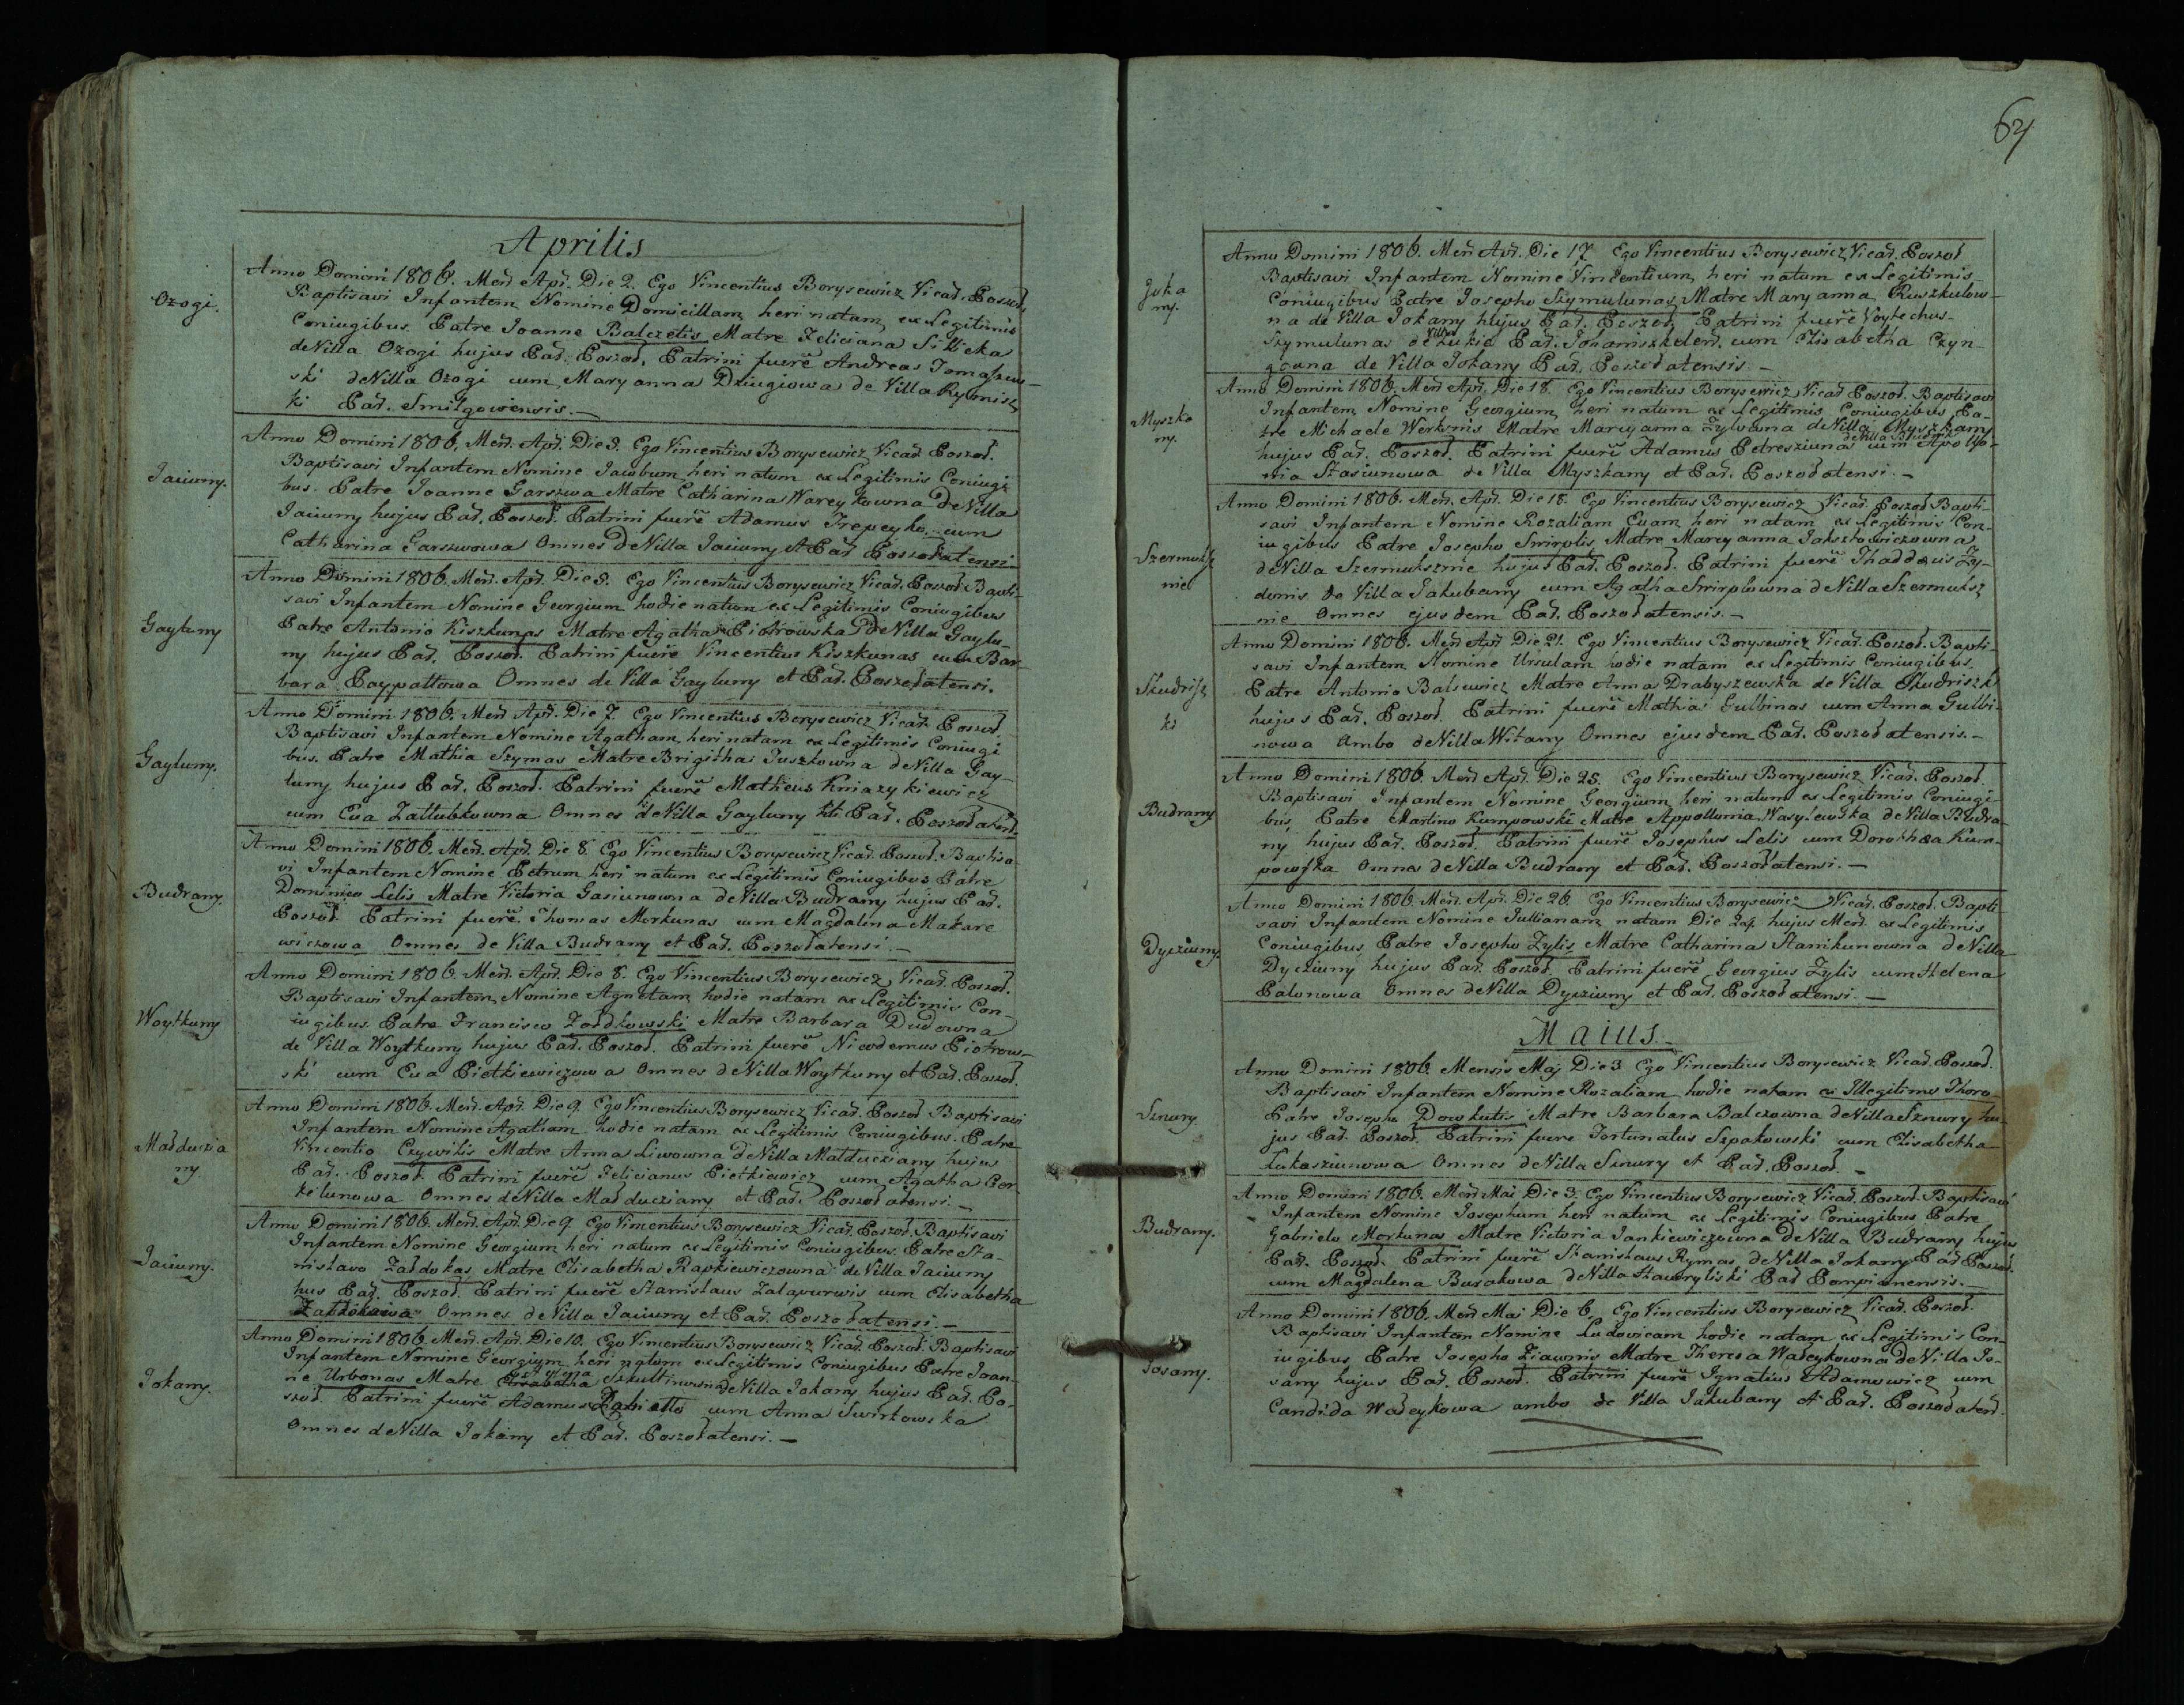 Aprilis
Ozogi.
Anno Domini 1806. Men̄. Apr̄. Die 2. Ego Vincentius Borysewicz Vicar̄. Poszod.
Baptisavi Infantem Nomine Domicillam heri natam, ex Legitimis
Coniugibus Patre Joanne Balczetis Matre Feliciana
de Villa Ozogi hujus Par̄. Poszod. Patrini fuerē Andreas Tomaszew-
ski de Villa Ozogi cum Maryanna Dziugiowa de Villa
ki Par̄. Smilgowiensis.—
Jaciuny.
Anno Domini 1806. Men̄. Apr̄. Die 3. Ego Vincentius Borysewicz Vicar̄ Poszod.
Baptisavi Infantem Nomine Jacobum heri natum ex Legitimis Coniugi-
bus. Patre Joanne Garszwa Matre Catharina Wareykowna de Villa
Jaciuny hujus Par̄. Poszod. Patrini fuerē Adamus Trepeyko cum
Catharina Garszwowa Omnes de Villa Jaciuny et Par̄ Poszodatensi.
Gayluny
Anno Domini 1806. Men̄. Apr̄. Die 5. Ego Vincentius Borysewicz Vicar̄. Poszod. Bapti-
savi Infantem Nomine Georgium hodie natum ex Legitimis Coniugibus
Patre Antonio Kiszkunas Matre Agatha Piotrowska de Villa Gaylu-
ny hujus Par̄. Poszod. Patrini fuerē Vincentius Kiszkunas cum Bar-
bara Omnes de Villa Gayluny et Par̄. Poszodatensi.
Gayluny.
Anno Domini 1806. Men̄ Apr̄. Die 7. Ego Vincentius Borysewicz Vicar̄. Poszod.
Baptisavi Infantem Nomine Agatham heri natam ex Legitimis Coniugi
bus. Patre Mathia Szymas Matre Brigitha Juszkowna de Villa Gay-
luny hujus Par̄. Poszod. Patrini fuerē Matheus Kniazykiewicz
cum Eva Zattubkowna Omnes de Villa Gayluny et Par̄. Poszodatens.
Budrany.
Anno Domini 1806. Men̄. Apr̄. Die 8. Ego Vincentius Borysewicz Vicar̄. Poszod. Baptisa-
vi Infantem Nomine Petrum heri natum ex Legitimis Coniugibus Patre
Dominico Lelis Matre Victoria Gasiunowna de Villa Budrany hujus Par̄.
Poszod. Patrini fuerē Thomas Morkunas cum Magdalena Makare
wiczowa Omnes de Villa Budrany et Par̄. Poszodatensi.—
Woytkuny
Anno Domini 1806. Men̄. Apr̄. Die 8. Ego Vincentius Borysewicz Vicar̄. Poszod.
Baptisavi Infantem Nomine Agnetam hodie natam ex Legitimis Con-
iugibus. Patre Francisco Zoldkowski Matre Barbara Dudowna
de Villa Woytkuny hujus Par̄. Poszod. Patrini fuerē Nicodemus Piotrow-
ski cum Eva Pietkiewiczowa Omnes de Villa Woytkuny et Par̄. Poszod.
Malduczia
ny.
Anno Domini 1806. Men̄. Apr̄. Die 9. Ego Vincentius Borysewicz Vicar̄. Poszod Baptisavi
Infantem Nomine Agatham hodie natam ex Legitimis Coniugibus. Patre
Vincentio Czywilis Matre Anna Liwowna de Villa Malducziany hujus
Par̄. Poszod. Patrini fuerē Felicianus Pietkiewicz cum Agatha Ger-
kelunowa Omnes de Villa Malducziany et Par̄. Poszodatensi.—
Jaciuny.
Anno Domini 1806. Men̄. Apr̄. Die 9. Ego Vincentius Borysewicz Vicar̄. Poszod. Baptisavi
Infantem Nomine Georgium heri natum ex Legitimis Coniugibus. Patre Sta-
nislavo Zaldokas Matre Elisabetha Rapkiewiczowna de Villa Jaciuny
hus Par̄. Poszod. Patrini fuerē Stanislaus Zalapurwis cum Elisabetha
Omnes de Villa Jaciuny et Par̄. Poszodatensi.—
Jokany.
Anno Domini 1806. Men̄. Apr̄. Die 10. Ego Vincentius Borysewicz Vicar̄. Poszod. Baptisavi
Infantem Nomine Georgium heri natum ex Legitimis Coniugibus Patre Joan-
ne Urbonas Matre de Villa Jokany hujus Par̄. Po-
szod. Patrini fuerē Adamus cum Anna Swirkowska
Omnes de Villa Jokany et Par̄. Poszodatensi.—
64
Joka
ny.
Anno Domini 1806. Men̄ Apr̄. Die 17. Ego Vincentius Borysewicz Vicar̄. Poszod
Baptisavi Infantem Nomine Vincentium, heri natum ex Legitimis
Coniugibus Patre Josepho Szymulunas, Matre Maryanna Ruszkulow-
na de Villa Jokany hujus Par̄. Poszod. Patrini fuerē Woytechus
Szymulunas de Villa Par̄. cum Elisabetha Czyn-
gowna de Villa Jokany Par̄. Poszodatensis.—
Myszka
ny.
Anno Domini 1806. Men̄ Apr̄. Die 18. Ego Vincentius Borysewicz Vicar̄ Poszod. Baptisavi
Infantem Nomine Georgium heri natum ex Legitimis Coniugibus Pa-
tre Michaele Werksnis Matre Maryanna Zylowna de Villa Myszkany
hujus Par̄. Poszod. Patrini fuerē Adamus Petreszunas de Villa Budrany cum Apollo-
nia Stasiunowa de Villa Myszkany et Par̄. Poszodatensi.—
Szermuksz
nie
Anno Domini 1806. Men̄. Apr̄. Die 18. Ego Vincentius Borysewicz Vicar̄. Poszod Bapti-
savi Infantem Nomine Rozaliam Evam heri natam ex Legitimis Con-
iugibus Patre Josepho Smirplis Matre Maryanna Jaksztowiczowna
de Villa Szermuksznie hujus Par̄. Poszod. Patrini fuerē Thaddæus Zy-
donis de Villa Jakubany cum Agatha Smirplowna de Villa Szermuksz
nie Omnes ejusdem Par̄. Poszodatensis.—
Skudrisz
ki
Anno Domini 1806. Men̄ Apr̄ Die 21. Ego Vincentius Borysewicz Vicar̄. Poszod. Bapti-
savi Infantem Nomine Ursulam hodie natam ex Legitimis Coniugibus.
Patre Antonio Balsewicz Matre Anna Drabyszewska de Villa Skudriszki
hujus Par̄. Poszod. Patrini fuerē Mathias Gulbinas cum Anna Gulbi-
nowa Ambo de Villa Witany Omnes ejusdem Par̄. Poszodatensis.—
Budrany
Anno Domini 1806. Men̄ Apr̄. Die 25. Ego Vincentius Borysewicz Vicar̄. Poszod.
Baptisavi Infantem Nomine Georgium heri natum ex Legitimis Coniugi-
bus Patre Martino Kumpowski Matre Appollumia Wasylewska de Villa Budra-
ny hujus Par̄. Poszod. Patrini fuerē Josephus Lelis cum Dorothæa Kum-
powska Omnes de Villa Budrany et Par̄. Poszodatensi.—
Dycziuny.
Anno Domini 1806. Men̄. Apr̄. Die 26. Ego Vincentius Borysewicz Vicar̄. Poszod. Bapti-
savi Infantem Nomine Jullianam natam Die 24. hujus Men̄. ex Legitimis
Coniugibus Patre Josepho Zylis Matre Catharina Stanikunowna de Villa
Dycziuny hujus Par̄. Poszod. Patrini fuerē Georgius Zylis cum Helena
Balonowa Omnes de Villa Dycziuny et Par̄. Poszodatensi.—
Maius.
Sznury.
Anno Domini 1806. Mensis Maj Die 3. Ego Vincentius Borysewicz Vicar̄. Poszod.
Baptisavi Infantem Nomine Rozaliam hodie natam ex Illegitimo Thoro-
Patre Josepho Dowkutis Matre Barbara Balczowna de Villa Sznury hu-
jus Par̄. Poszod. Patrini fuere Fortunatus Szpakowski cum Elisabetha
Lukasziunowa Omnes de Villa Sznury et Par̄. Poszod.—
Budrany.
Anno Domini 1806. Men̄ Mai Die 3. Ego Vincentius Borysewicz Vicar̄. Poszod. Baptisavi
Infantem Nomine Josephum heri natum ex Legitimis Coniugibus Patre
Gabriele Morkunas Matre Victoria Jankiewiczowna de Villa Budrany hujus
Par̄. Poszod. Patrini fuerē Stanislaus Rymas de Villa Jokany Par̄ Poszod.
cum Magdalena Burakowa de Villa Par̄ Pompianensis.—
Josany.
Anno Domini 1806. Men̄ Mai Die 6. Ego Vincentius Borysewicz Vicar̄. Poszod.
Baptisavi Infantem Nomine Ludovicam hodie natam ex Legitimis Con-
iugibus Patre Josepho Ziaunis Matre Theresa Wadeykowna de Villa Jo-
sany hujus Par̄. Poszod. Patrini fuerē Ignatius Adamowicz cum
Candida Wadeykowa ambo de Villa Jakubany et Par̄. Poszodatens.